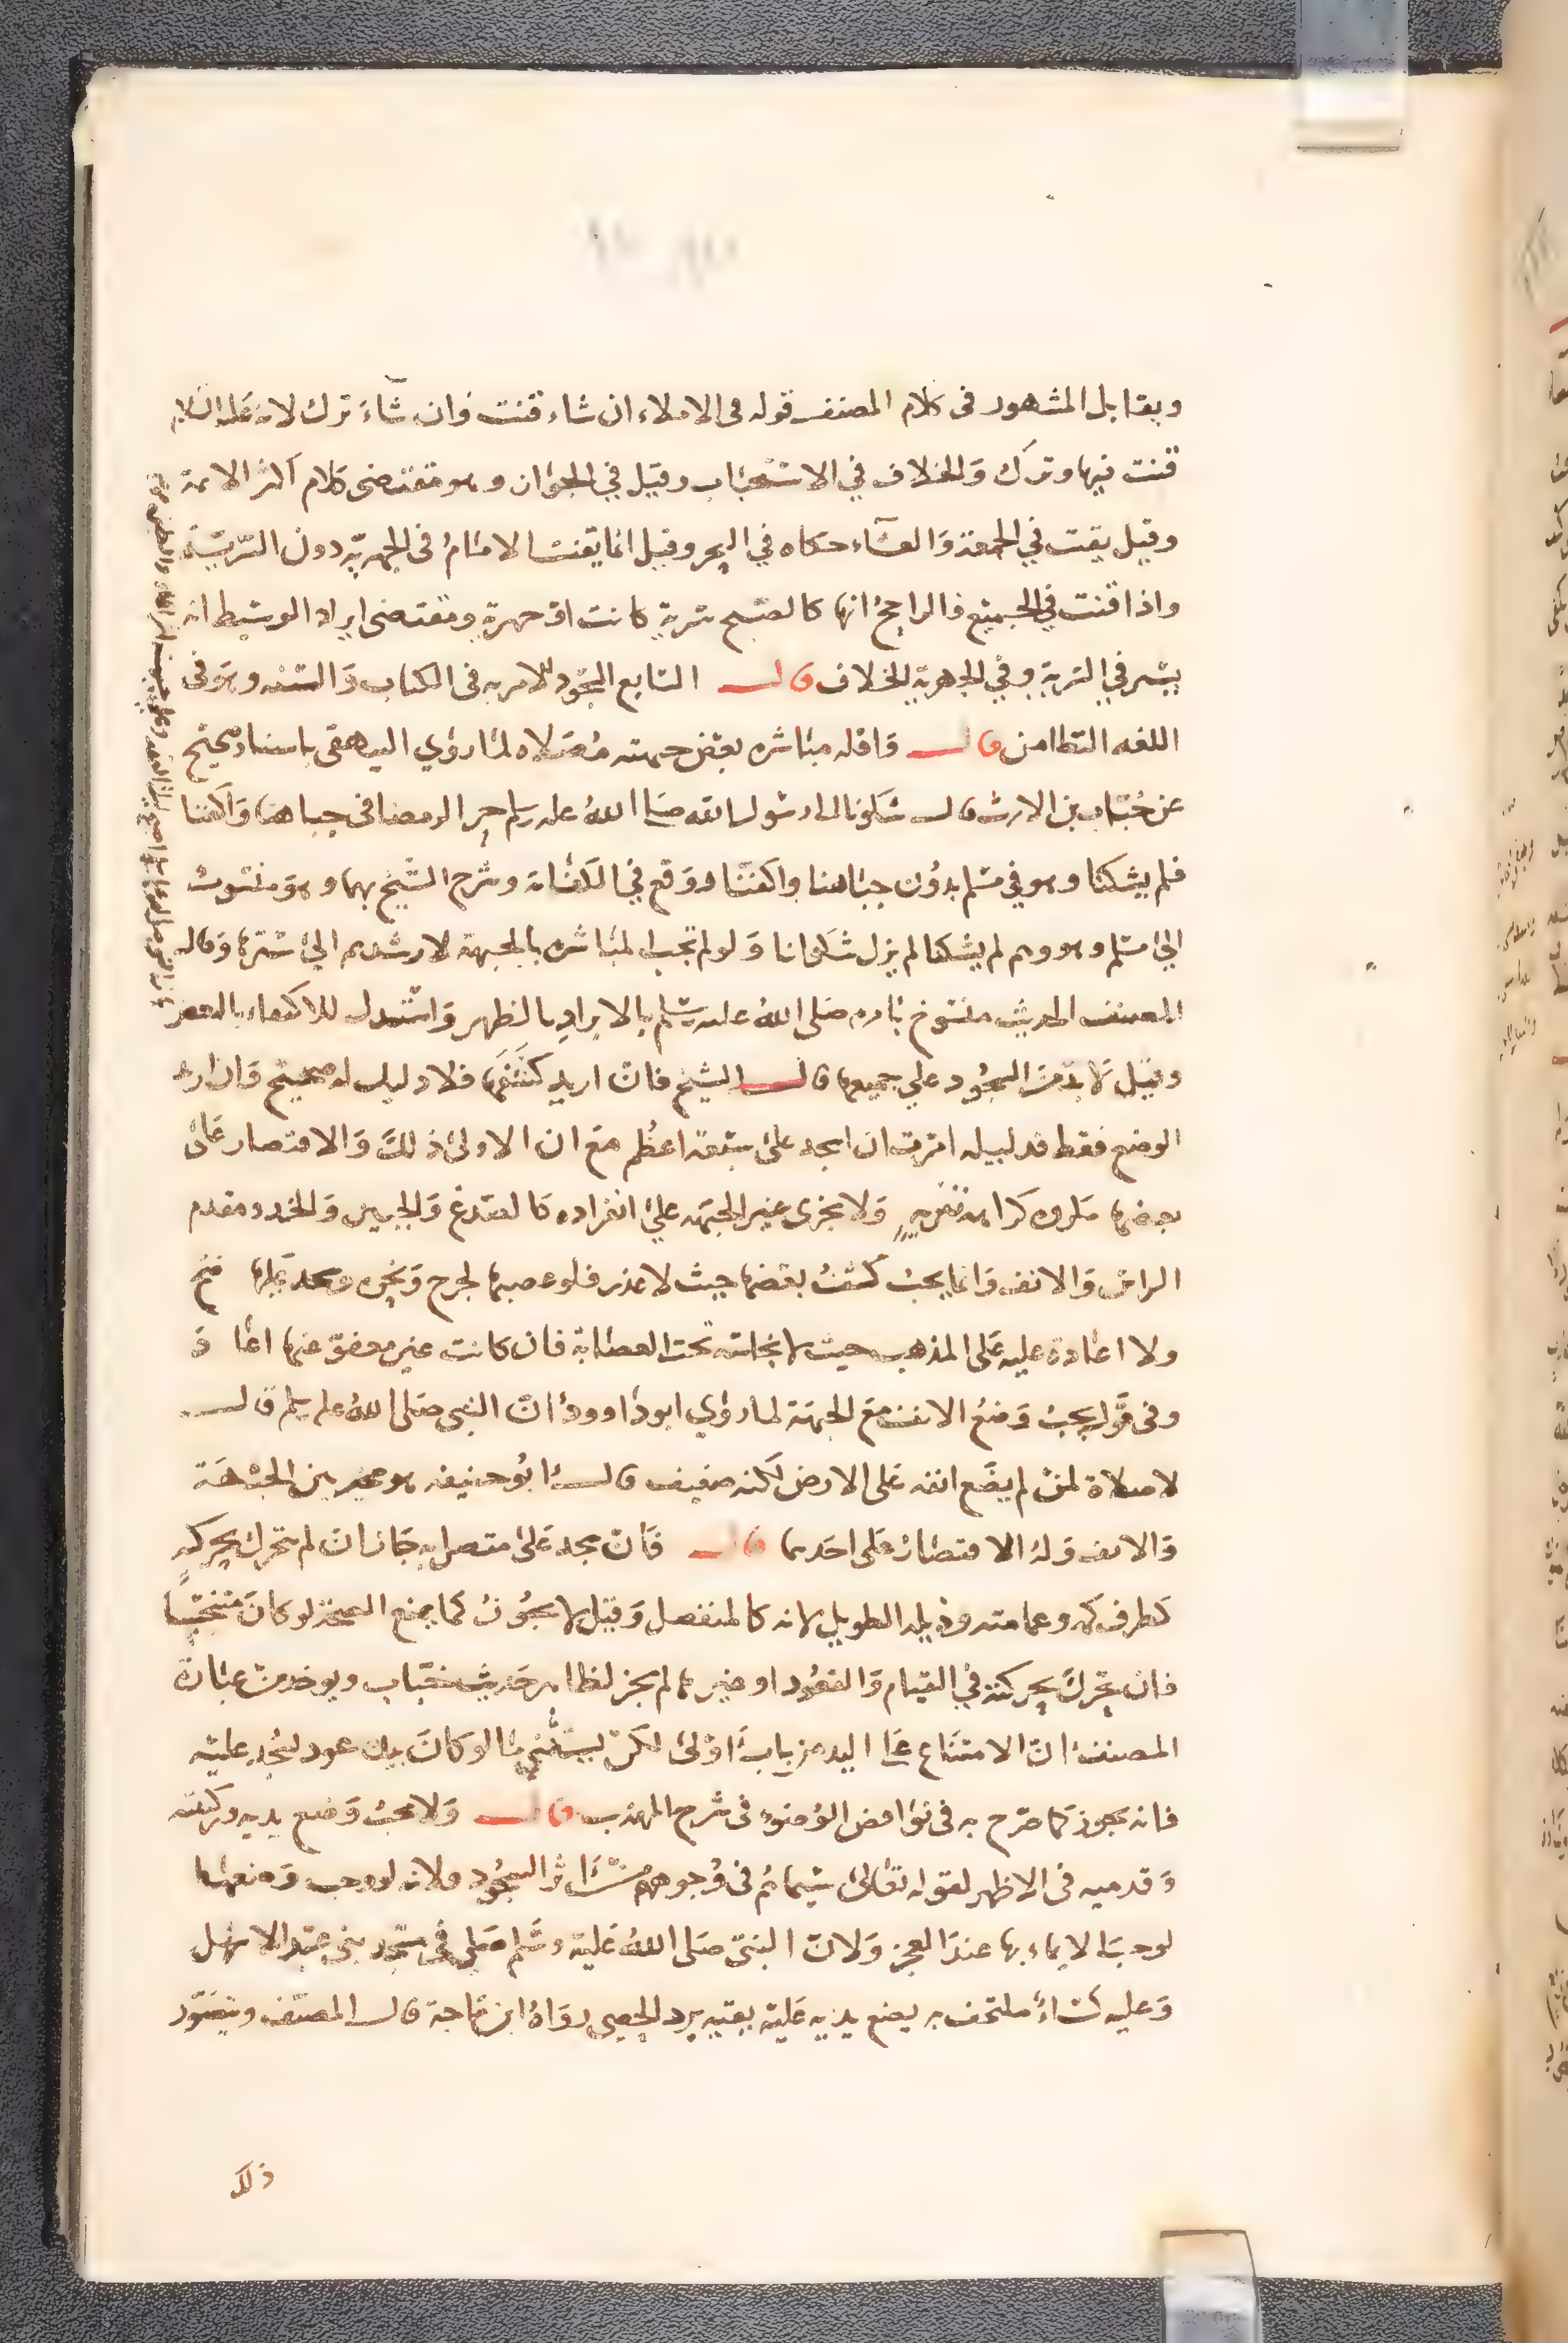 ويقابل المشهور في كلام المصنف قوله في الاملاء ان شاء قنت وان شاء ترك لانه عليه السلام
قنت فيها وترك والخلاف في الاستحباب وقيل في الجواز وهو مقتضى كلام اكثر الائمة
وقيل يقنت في الجمعة والعشاء حكاه في البحر وقيل انما يقنت الامام في الجهرية دون السرية
واذا قنت في الجميع فالراجح انها كالصبح سرية كانت او جهرية ومقتضى ايراد الوسيط انه
يسر في السرية وفي الجهرية الخلاف قال السابع السجود للامر به في الكتاب والسنه وهو في
اللغه التطامن قال واقله مباشره بعض جبهته مصلاه لما روي البيهقي باسناد صحيح
عن خباب بن الارت قال شكونا الى رسول الله صلى الله عليه وسلم حر الرمضا في جباهنا واكفنا
فلم يشكنا وهو في مسلم بدون جباهنا واكفنا ووقع في الكفاية وشرح الشيخ بهما وهو منسوب
الى مسلم وهو وهم لم يشكنا لم يزل شكوانا ولو لم تجب المباشره بالجبهة لارشدهم الى سترها وقال
المصنف الحديث منسوخ بامره صلى الله عليه وسلم بالابراد بالظهر واستدل للاكتفاء بالبعض
وقيل لا بد من السجود علي جميعها قال الشيخ فان اريد كشفها فلا دليل له صحيح وان اريد
الوضع فقط فدليله امرت ان اسجد على سبعة اعظم مع ان الاولى ذلك والاقتصار على
بعضها مكروه كراهة تنزيه ولا يجزي غير الجبهه علي انفراده كالصدغ والجبين والخد ومقدم
الراس والانف وانما يجب كشف بعضها حيث لا عذر فلو عصبها لجرح ونحوه وسجد عليها صح
ولا اعادة عليه على المذهب حيث لا نجاسة تحت العصابة فان كانت غير معفو عنها اعاد
وفي قول يجب وضع الانف مع الجبهة لما روي ابو داوود ان النبي صلى الله عليه وسلم قال
لا صلاة لمن لم يضع انفه على الارض لكنه ضعيف قال ابو حنيفه هو مخير بين الجبهة
والانف وله الاقتصار على احدهما قال فان سجد على متصل به جاز ان لم يتحرك بحركته
كطرف كمه وعمامته وذيله الطويل لانه كالمنفصل وقيل لا يجوز كما يمنع الصحة لو كان متنجسا
فان تحرك بحركته في القيام والقعود او غيرهما لم يجز لظاهر حديث خباب ويوخذ من عبارة
المصنف ان الامتناع على اليد من باب اولى لكن يستثنى ما لو كان بيده عود لسجد عليه
فانه يجوز كما صرح به في نواقض الوضوء في شرح المهذب قال ولا يجب وضع يديه وركبتيه
وقدميه في الاظهر لقوله تعالى سيماهم في وجوههم من اثر السجود ولانه لو وجب وضعها
لوجب الايماء بها عند العجز ولان النبي صلى الله عليه وسلم صلى في مسجد بني عبد الاشهل
وعليه كساء ملتحف به يضع يديه عليه يقيه برد الحصى رواه ابن ماجة قال المصنف ويتصور
ذلك